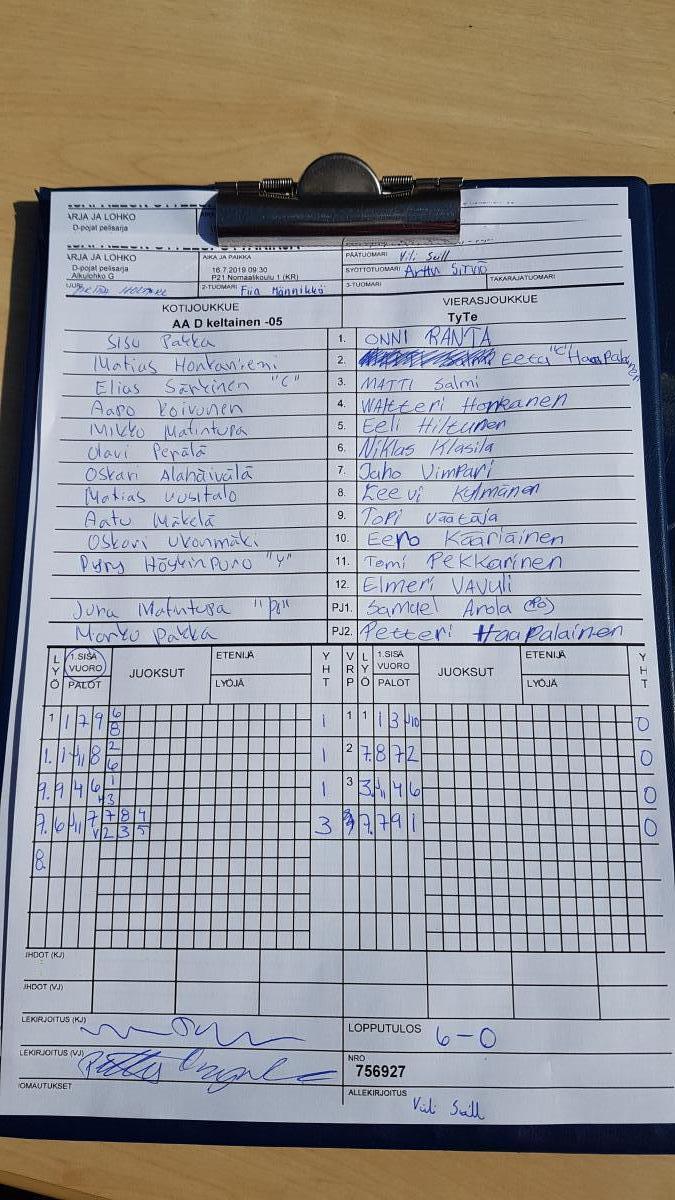 ARJA JA LOHKO
D-pojat pelisarja
ARJA JA LOHKO
D-pojat pelisarja
Alkulohko G
AIKA JA PAIKKA
16.7.2019 09:30
P21 Nornaalikoulu 1 (KR)
PÄÄTUOMARI Vili Sull
SYÖTTÖTUOMARI Arttu Sitviö
2-TUOMARI Fiia Männikkö
3-TUOMARI
TAKARAJATUOMARI
KOTIJOUKKUE
AA D keltainen -05
VIERASJOUKKUE
TyTe
Sisu Pakka 1. ONNI RANTA
Matias Honkaniemi 2. Eetu "C" Haapalainen
Elias Särkinen "C" 3. MATTI Salmi
Aapo Koivunen 4. Waltteri Honkanen
Mikko Matintupa 5. Eeli Hiltunen
Olavi Perälä 6. Niklas Klasila
Oskari Alahäivälä 7. Juho Vimpari
Matias Uusitalo 8. Eeevi Kylmänen
Aatu Mäkelä 9. Topi Väätäjä
Oskari Ukonmäki 10. Eero Kääriäinen
Pyry Höykinpuro "Y" 11. Tomi Pekkarinen
12. Elmeri Vavuli
Juha Matintupa PJ1. Samuel Arola
Marko Pakka PJ2. Petteri Haapalainen
LYÖ 1.SISÄ VUORO PALOT JUOKSUT ETENIJÄ LYÖJÄ YHT VRP LYÖ 1.SISÄ VUORO PALOT JUOKSUT ETENIJÄ LYÖJÄ YHT
1 1 7 9 6 8 1 1 1 1 3 0
1. 8 2 6 1 2 7. 8 7 2 0
9. 9 4 6 1 3 1 3 3. 4 6 0
7. 6 7 7 8 4 2 3 5 3 7. 7 9 1 0
8.
HDOT (KJ)
HDOT (VJ)
LEKIRJOITUS (KJ)
LOPPUTULOS 6-0
LEKIRJOITUS (VJ)
NRO
756927
OMAUTUKSET
ALLEKIRJOITUS
Vili Sull